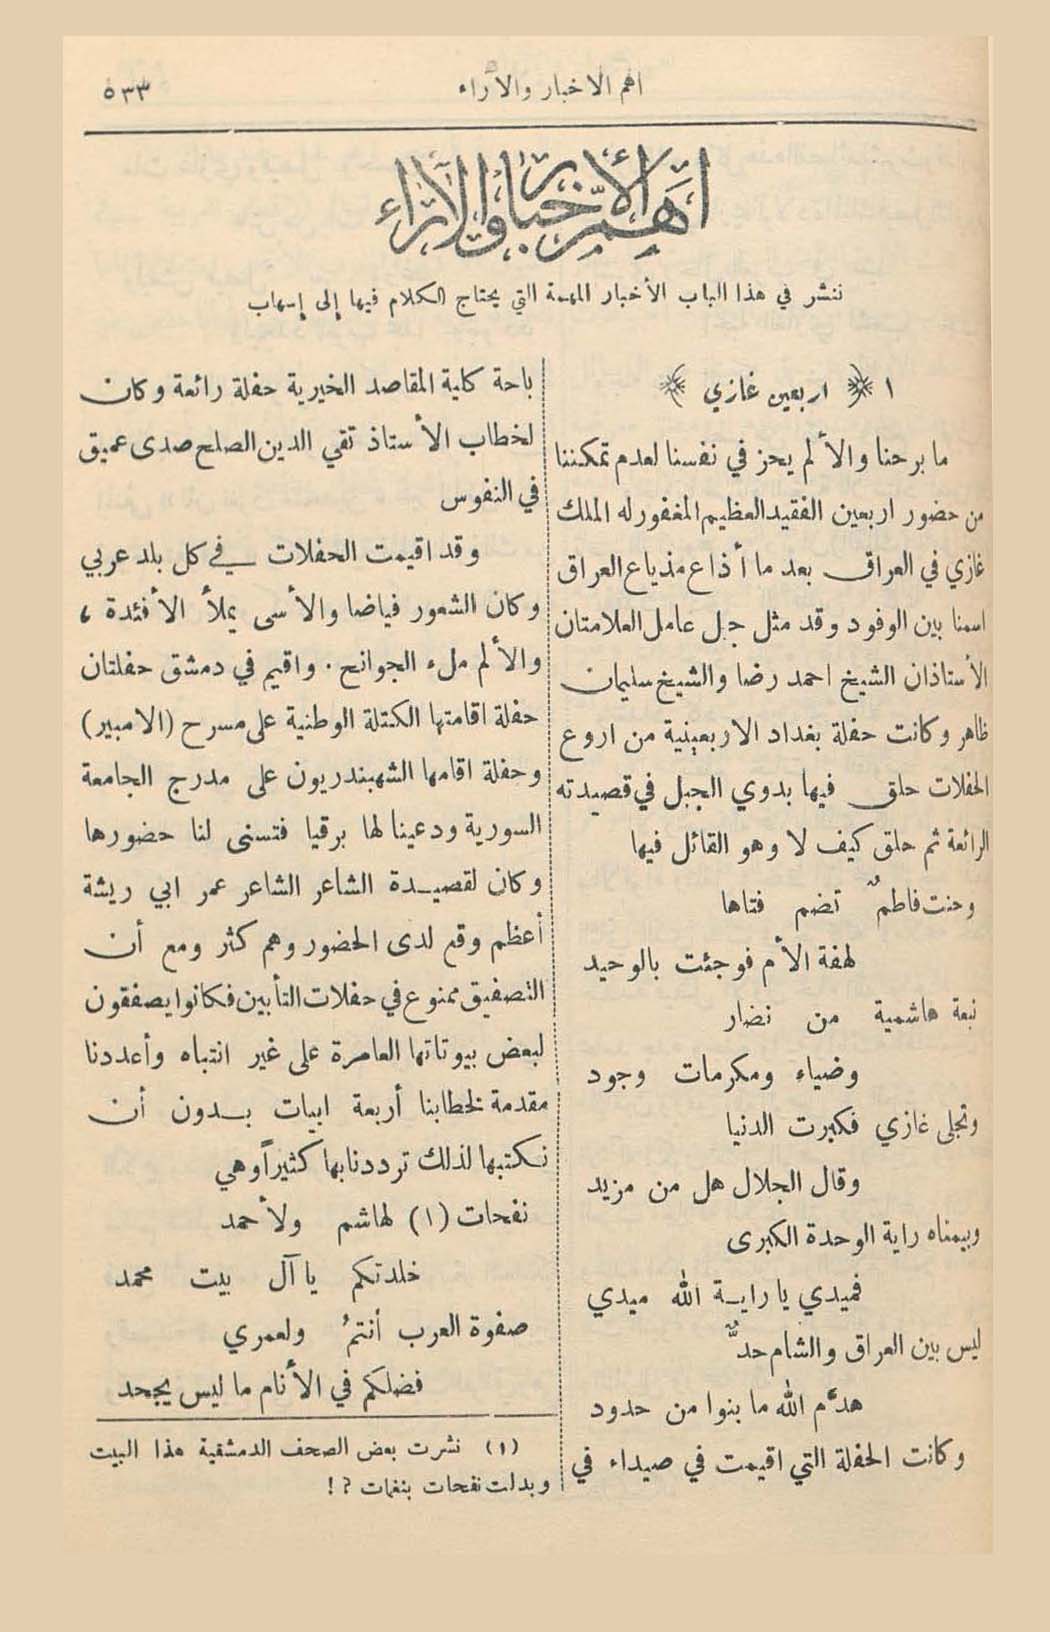 اهم الاخبار والآراء
٥٣٣
أهم الأخبار والآراء
ننشر في هذا الباب الأخبار المهمة التي يحتاج الكلام فيها إلى إسهاب
١ ﴿ اربعين غازي ﴾
ما برحنا والألم يحز في نفسنا لعدم تمكننا
من حضور اربعين الفقيد العظيم المغفور له الملك
غازي في العراق بعد ما أذاع مذياع العراق
اسمنا بين الوفود وقد مثل جبل عامل العلامتان
الأستاذان الشيخ احمد رضا والشيخ سليمان
ظاهر وكانت حفلة بغداد الاربعينية من اروع
الحفلات حلق فيها بدوي الجبل في قصيدته
الرائعة ثم حلق كيف لا وهو القائل فيها
وحنت فاطمٌ تضم فتاها
لهفة الأم فوجئت بالوحيد
نبعة هاشمية من نضار
وضياء ومكرمات وجود
وتجلى غازي فكبرت الدنيا
وقال الجلال هل من مزيد
وبيمناه راية الوحدة الكبرى
فميدي يا راية الله ميدي
ليس بين العراق والشام حدٌّ
هدم الله ما بنوا من حدود
وكانت الحفلة التي اقيمت في صيداء في
باحة كلية المقاصد الخيرية حفلة رائعة وكان
لخطاب الأستاذ تقي الدين الصلح صدى عميق
في النفوس
وقد اقيمت الحفلات في كل بلد عربي
وكان الشعور فياضا والأسى يملأ الأفئدة ،
والألم ملء الجوانح . واقيم في دمشق حفلتان
حفلة اقامتها الكتلة الوطنية على مسرح (الامبير)
وحفلة اقامها الشهبندريون على مدرج الجامعة
السورية ودعينا لها برقيا فتسنى لنا حضورها
وكان لقصيدة الشاعر الشاعر عمر ابي ريشة
أعظم وقع لدى الحضور وهم كثر ومع أن
التصفيق ممنوع في حفلات التأبين فكانوا يصفقون
لبعض بيوتاتها العامرة على غير انتباه وأعددنا
مقدمة لخطابنا أربعة ابيات بدون أن
نكتبها لذلك ترددنا بها كثيراً وهي
نفحات (١) لهاشم ولأحمد
خلدتكم يا آل بيت محمد
صفوة العرب أنتمُ ولعمري
فضلكم في الأنام ما ليس يجحد
(١) نشرت بعض الصحف الدمشقية هذا البيت
وبدلت نفحات بنغمات ؟!